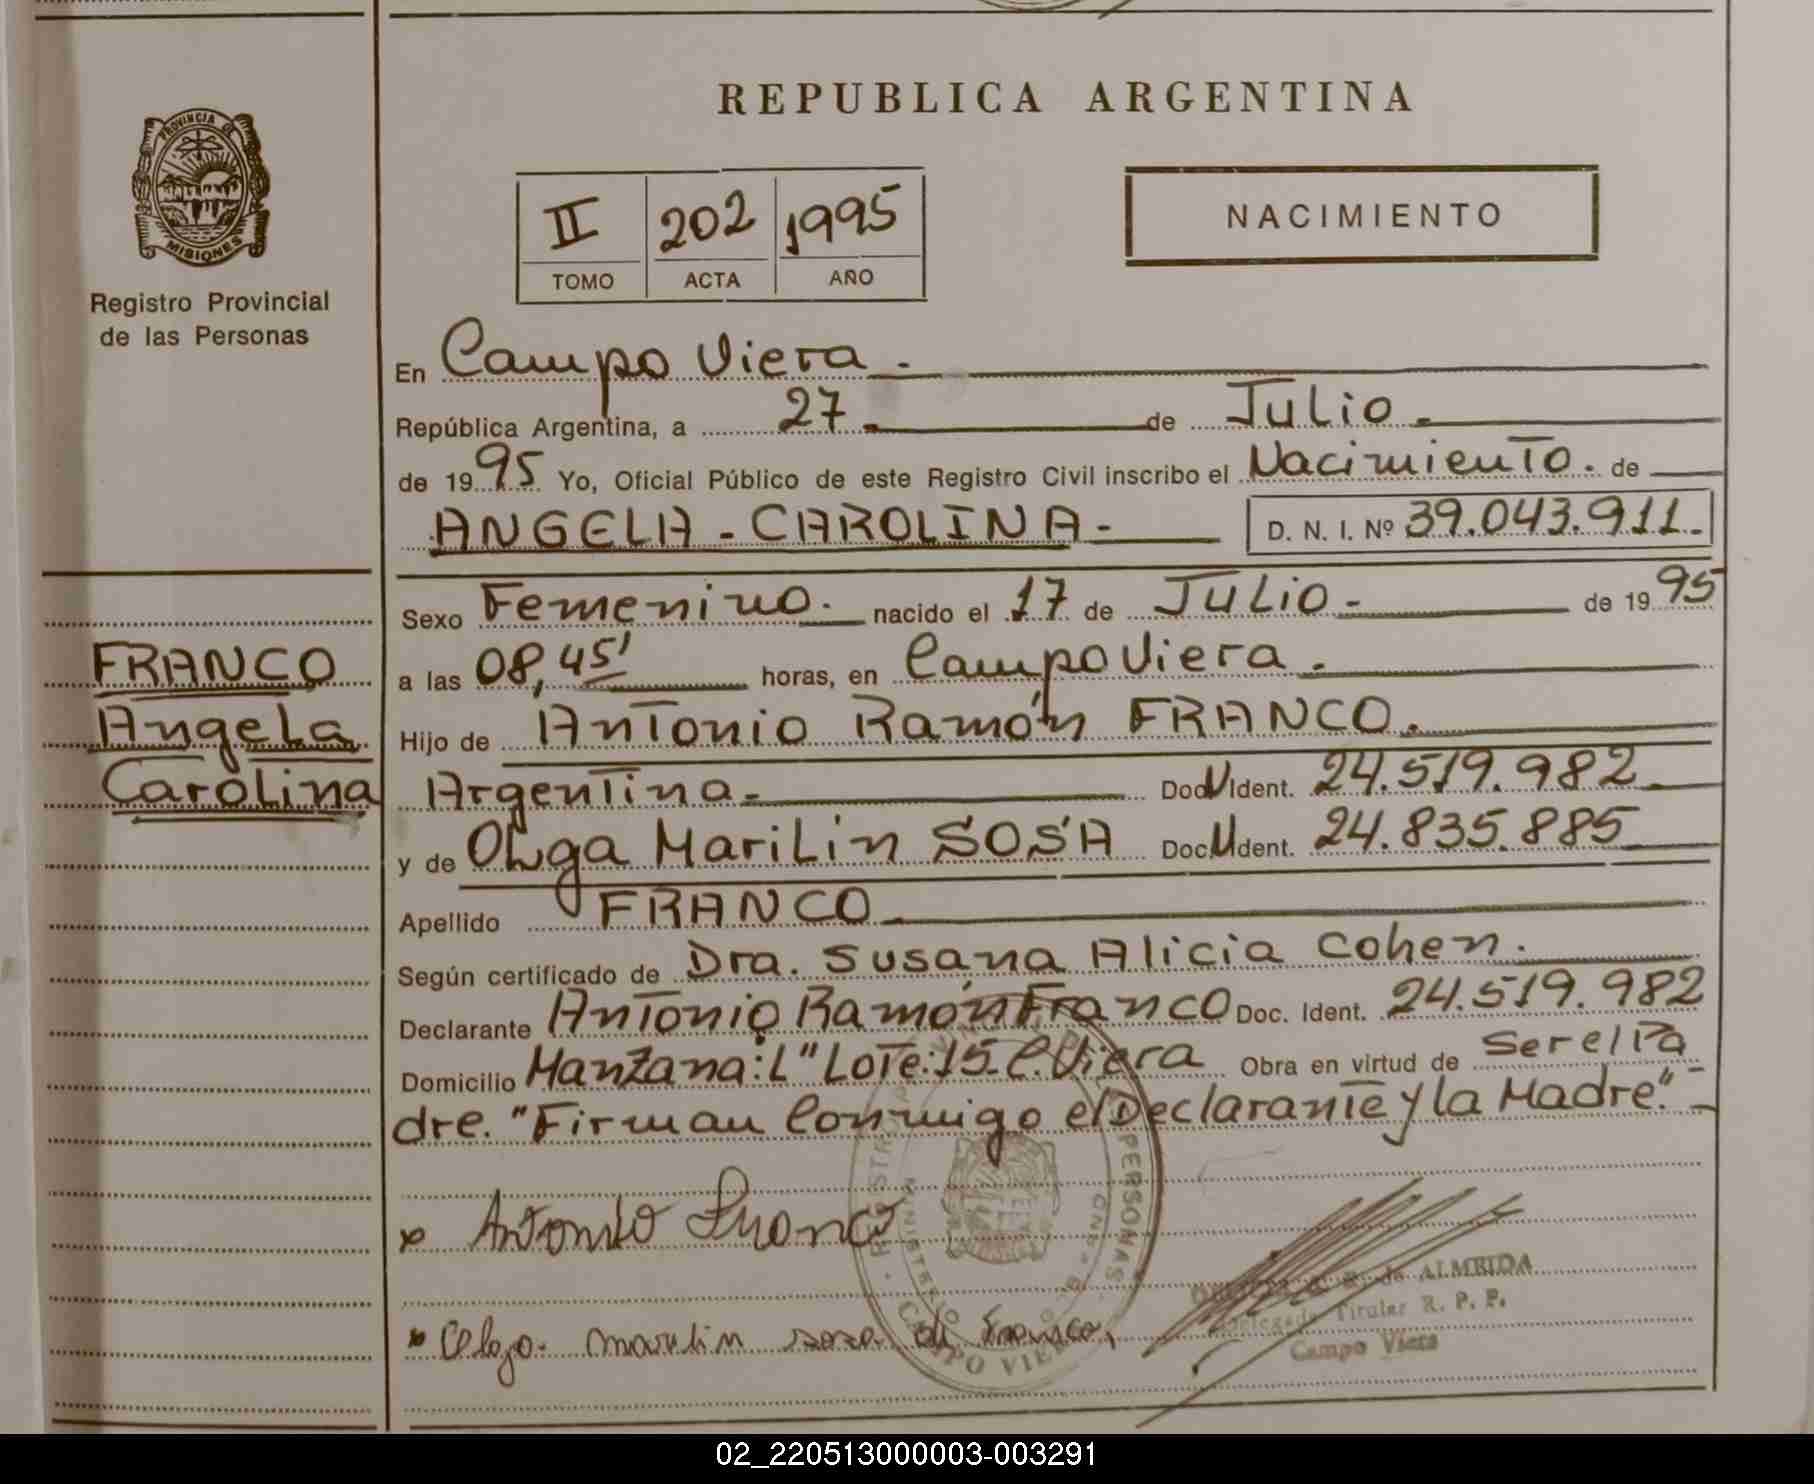 REPUBLICA ARGENTINA
PROVINCIA DE
MISIONES
Registro Provincial
de las Personas
II 202 1995
TOMO ACTA AÑO
NACIMIENTO
En Campo Viera.
República Argentina, a 27 de Julio
de 1995 Yo, Oficial Público de este Registro Civil inscribo el Nacimiento. de
ANGELA - CAROLINA - D. N. I. Nº 39.043.911.
Sexo Femenino. nacido el 17 de Julio - de 1995
FRANCO
Angela
Carolina
a las 08,45' horas, en Campo Viera.
Hijo de Antonio Ramón FRANCO.
Argentina - Doc U Ident. 24.519.982
y de Olga Marilin SOSA Doc. U Ident. 24.835.885
Apellido FRANCO
Según certificado de Dra. Susana Alicia Cohen.
Declarante Antonio Ramón Franco Doc. Ident. 24.519.982
Domicilio Manzana: L" Lote: 15 - C. Viera Obra en virtud de Ser el Pa
dre. "Firman Conmigo el Declarante y la Madre." -
x Antonio Franco
x Olga marilin soza de Franco,
PERSONAS
CAMPO VIERA
de ALMEIDA
Delegada Titular R. P. P.
Campo Viera
02_220513000003-003291